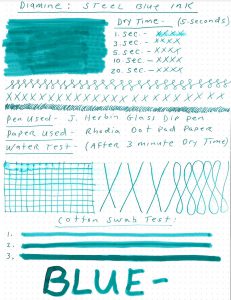 Diamine: Steel Blue Ink
Dry Time- (5-seconds)
1. sec.- XXXX
3. sec.- XXXX
5. sec.- XXXX
10. sec.- XXXX
20. sec.- XXXX
XXXXXXXXXXXXXXXXXXX XX XX
Pen Used- J. Herbin Glass Dip pen
Paper Used- Rhodia Dot Pad Paper
Water Test- (After 3 minute Dry Time)
Cotton Swab Test:
1.
2.
3.
BLUE-